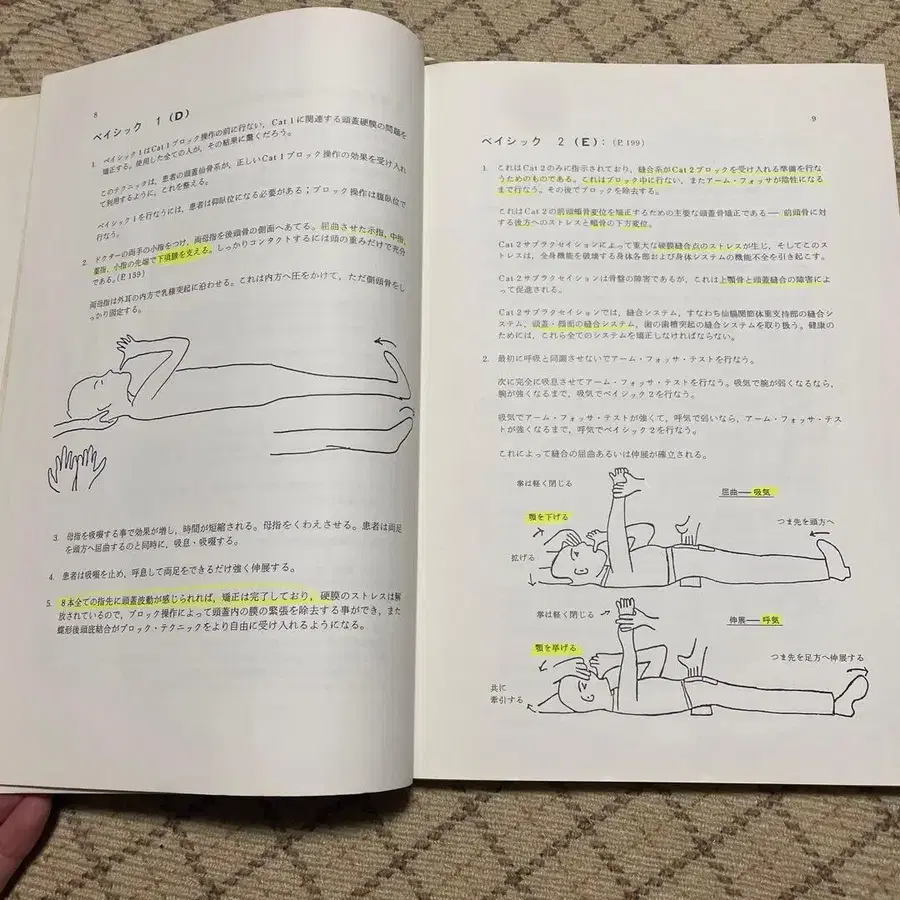 8
ベイシック 1 (D)
1. ベイシック1はCat 1ブロック操作の前に行ない，Cat 1に関連する頭蓋硬膜の問題を
矯正する。使用した全ての人が，その結果に驚くだろう。
このテクニックは，患者の頭蓋仙骨系が，正しいCat 1ブロック操作の効果を受け入れ
て利用するように，これを整える。
ベイシック1を行なうには，患者は仰臥位になる必要がある；ブロック操作は腹臥位で
行なう。
2. ドクターの両手の小指をつけ，両母指を後頭骨の側面へあてる。屈曲させた示指，中指，
薬指，小指の先端で下項線を支える。しっかりコンタクトするには頭の重みだけで充分
である。(P.139)
両母指は外耳の内方で乳様突起に沿わせる。これは内方へ圧をかけて，ただ側頭骨をし
っかり固定する。
3. 母指を吸啜する事で効果が増し，時間が短縮される。母指をくわえさせる。患者は両足
を頭方へ屈曲するのと同時に，吸息・吸啜する。
4. 患者は吸啜を止め，呼息して両足をできるだけ強く伸展する。
5. 8本全ての指先に頭蓋波動が感じられれば，矯正は完了しており，硬膜のストレスは解
放されているので，ブロック操作によって頭蓋内の膜の緊張を除去する事ができ，また
蝶形後頭底結合がブロック・テクニックをより自由に受け入れるようになる。
9
ベイシック 2 (E)：(P.199)
1. これはCat 2のみに指示されており，縫合系がCat 2ブロックを受け入れる準備を行な
うためのものである。これはブロック中に行ない，またアーム・フォッサが陰性になる
まで行なう。その後でブロックを除去する。
これはCat 2の前頭蝸骨変位を矯正するための主要な頭蓋骨矯正である——前頭骨に対
する後方へのストレスと蝸骨の下方変位。
Cat 2サブラクセイションによって重大な硬膜縫合点のストレスが生じ，そしてこのス
トレスは，全身機能を破壊する身体各部および身体システムの機能不全を引き起こす。
Cat 2サブラクセイションは骨盤の障害であるが，これは上顎骨と頭蓋縫合の障害によ
って促進される。
Cat 2サブラクセイションでは，縫合システム，すなわち仙腸関節体重支持部の縫合シ
ステム，頭蓋・顔面の縫合システム，歯の歯槽突起の縫合システムを取り扱う。健康の
ためには，これら全てのシステムを矯正しなければならない。
2. 最初に呼吸と同調させないでアーム・フォッサ・テストを行なう。
次に完全に吸息させてアーム・フォッサ・テストを行なう。吸気で腕が弱くなるなら，
腕が強くなるまで，吸気でベイシック2を行なう。
吸気でアーム・フォッサ・テストが強くて，呼気で弱いなら，アーム・フォッサ・テス
トが強くなるまで，呼気でベイシック2を行なう。
これによって縫合の屈曲あるいは伸展が確立される。
拳は軽く閉じる
屈曲——吸気
顎を下げる
つま先を頭方へ
拡げる
拳は軽く閉じる
伸展——呼気
顎を挙げる
つま先を足方へ伸展する
共に
牽引する